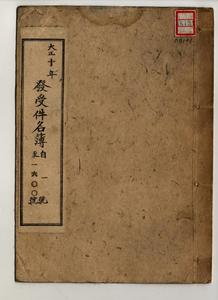 大正十年
發受件名簿
自一號
至一六〇〇號